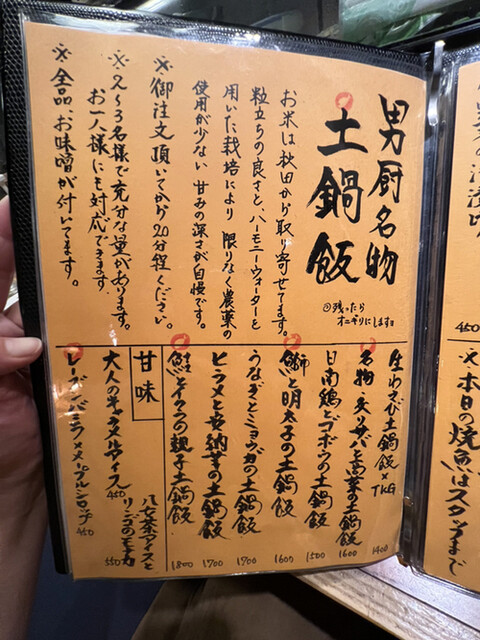 男厨名物
土鍋飯
◎残ったら
オニギリにします
お米は秋田から取り寄せてます。
粒立ちの良さと、ハーモニーウォーターを
用いた栽培により 限りなく農薬の
使用が少ない 甘みの深さが自慢です。
※御注文頂いてから20分程ください。
※2〜3名様で充分な量があります。
お一人様にも対応できます。
※全品、お味噌が付いてます。
生わさび土鍋飯×TKG
1400
名物・炙りサバと高菜の土鍋飯
1600
日南鶏とゴボウの土鍋飯
1500
鰤と明太子の土鍋飯
1600
うなぎとミョウガの土鍋飯
1900
ヒラメと安納芋の土鍋飯
1700
鮭とイクラの親子土鍋飯
1800
甘味
八女茶アイスと
リンゴのモナカ
550
大人のキャラメルアイス
450
レーズンバニラ×メープルシロップ
450
450
※本日の焼魚はスタッフまで